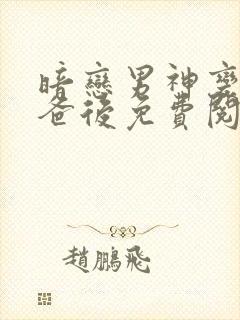 暗戀男神變
爸後免費閱
趙鵬飛